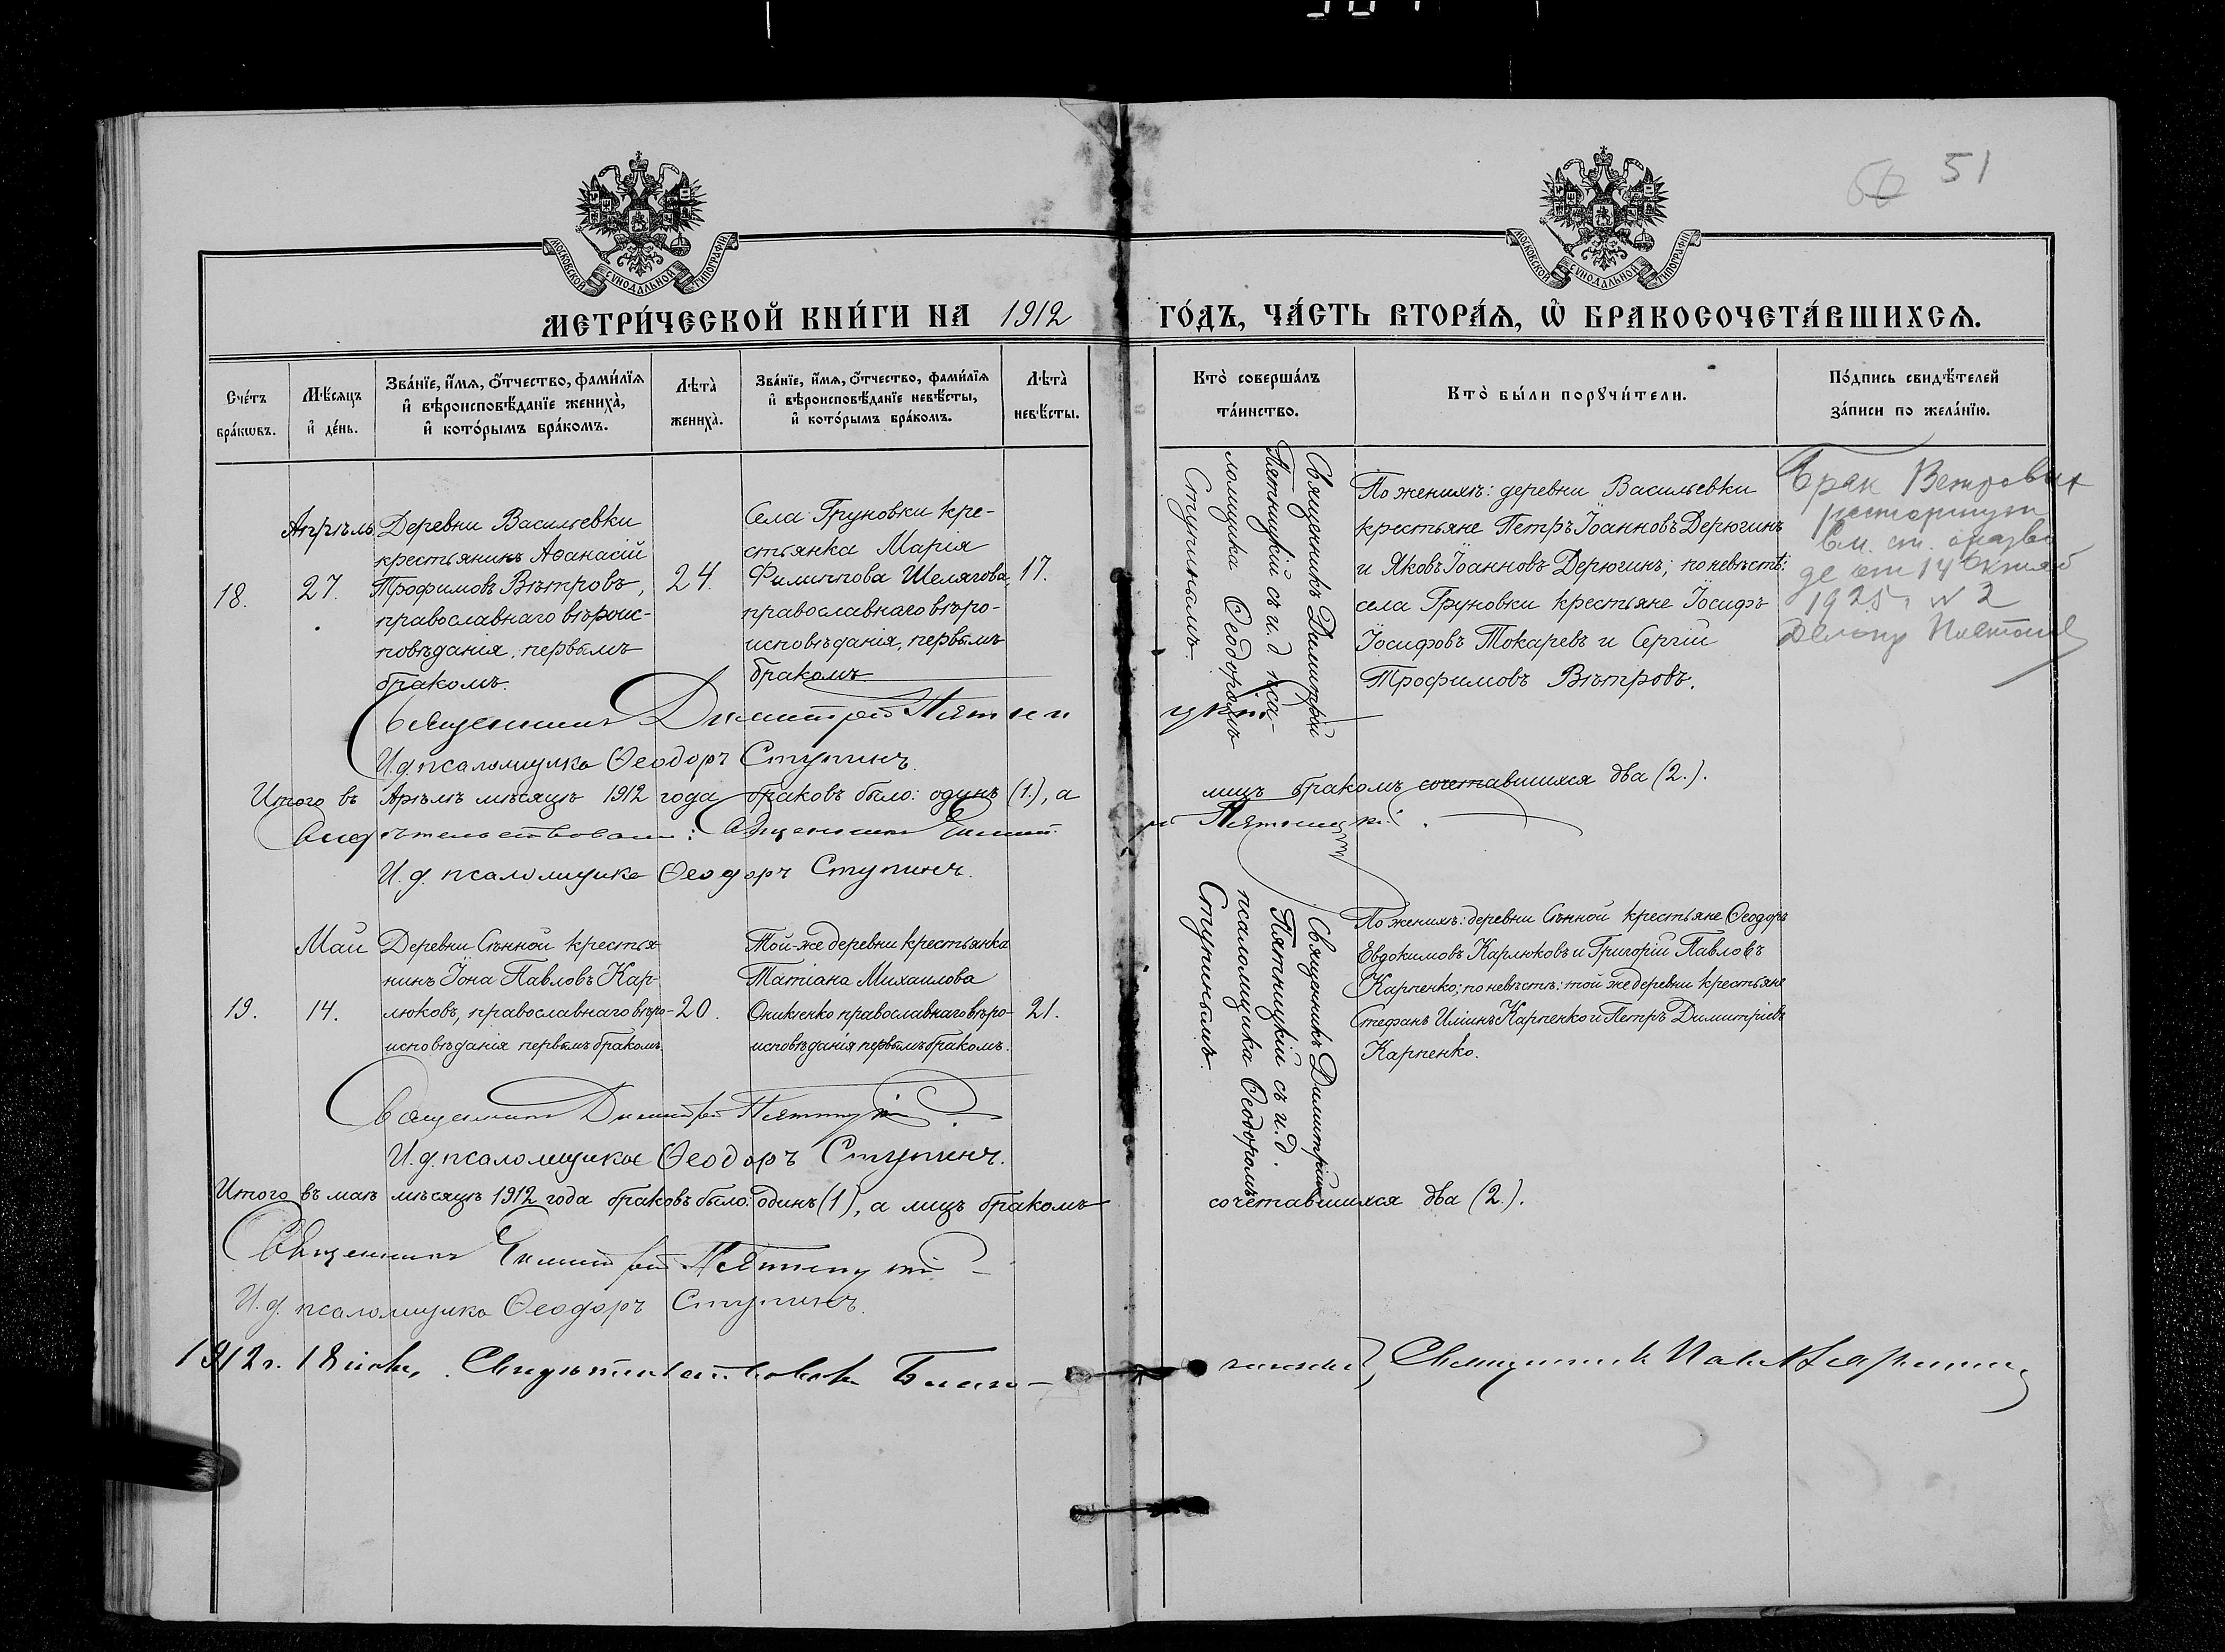 51
МОСКОВСКОЙ СѴНОДАЛЬНОЙ ТИПОГРАФІИ
МОСКОВСКОЙ СѴНОДАЛЬНОЙ ТИПОГРАФІИ
МЕТРИ́ЧЕСКОЙ КНИ́ГИ НА 1912 ГО́ДЪ, ЧА́СТЬ ВТОРА́Ѧ, Ѽ БРАКОСОЧЕТА́ВШИХСѦ.
Сче́тъ
бра́кѡвъ.
Мѣ́сяцъ
и҆ де́нь.
Зва́нїе, и҆́мѧ, ѻ҆́тчество, фами́лїѧ
и҆ вѣроисповѣ́данїе жениха̀,
и҆ кото́рымъ бра́комъ.
Лѣта̀
жениха̀.
Зва́нїе, и҆́мѧ, ѻ҆́тчество, фами́лїѧ
и҆ вѣроисповѣ́данїе невѣ́сты,
и҆ кото́рымъ бра́комъ.
Лѣта̀
невѣ́сты.
Кто̀ соверша́лъ
та́инство.
Кто̀ бы́ли порꙋчи́тели.
По́дпись свидѣ́телей
за́писи по жела́нїю.
18.
Апрѣль
27.
Деревни Васильевки
крестьянинъ Аѳанасій
Трофимовъ Вѣтровъ,
православнаго вѣроис-
повѣданія, первымъ
бракомъ.
24.
Села Груновки кре-
стьянка Марія
Филиппова Шелягова
православнаго вѣро-
исповѣданія, первымъ
бракомъ
17.
Священникъ Димитрій
Пятницкій съ и. д. пса-
ломщика Ѳеодоромъ
Ступинымъ.
По женихѣ: деревни Васильевки
крестьяне Петръ Іоанновъ Дерюгинъ
и Яковъ Іоанновъ Дерюгинъ; по невѣстѣ:
села Груновки крестьяне Іосифъ
Іосифовъ Токаревъ и Сергій
Трофимовъ Вѣтровъ.
Брак Ветровых
расторгнут
14
1925 г № 2
Священникъ Димитрій Пятницкій
И. д. псаломщика Ѳеодоръ Ступинъ.
Итого въ Апрѣлѣ мѣсяцѣ 1912 года браковъ было: одинъ (1.), а лицъ бракомъ сочетавшихся два (2.).
Свидѣтельствовали: Священникъ Димитрій Пятницкій.
И. д. псаломщика Ѳеодоръ Ступинъ.
19.
Май
14.
Деревни Сѣнной крестья-
нинъ Іона Павловъ Кар-
люковъ, православнаго вѣро-
исповѣданія первымъ бракомъ.
20.
Той-же деревни крестьянка
Татіана Михаилова
Оникіенко православнаго вѣро-
исповѣданія первымъ бракомъ.
21.
Священникъ Димитрій
Пятницкій съ и. д.
псаломщика Ѳеодоромъ
Ступинымъ.
По женихѣ: деревни Сѣнной крестьяне Ѳеодоръ
Евдокимовъ Карлюковъ и Григорій Павловъ
Карпенко; по невѣстѣ: той же деревни крестьяне
Стефанъ Иліинъ Карпенко и Петръ Димитріевъ
Карпенко.
Священникъ Димитрій Пятницкій.
И. д. псаломщика Ѳеодоръ Ступинъ.
Итого въ маѣ мѣсяцѣ 1912 года браковъ было: одинъ (1), а лицъ бракомъ сочетавшихся два (2.).
Священникъ Димитрій Пятницкій
И. д. псаломщика Ѳеодоръ Ступинъ.
1912 г. 18 Свидѣтельствовалъ Благо-
чинный, Священникъ